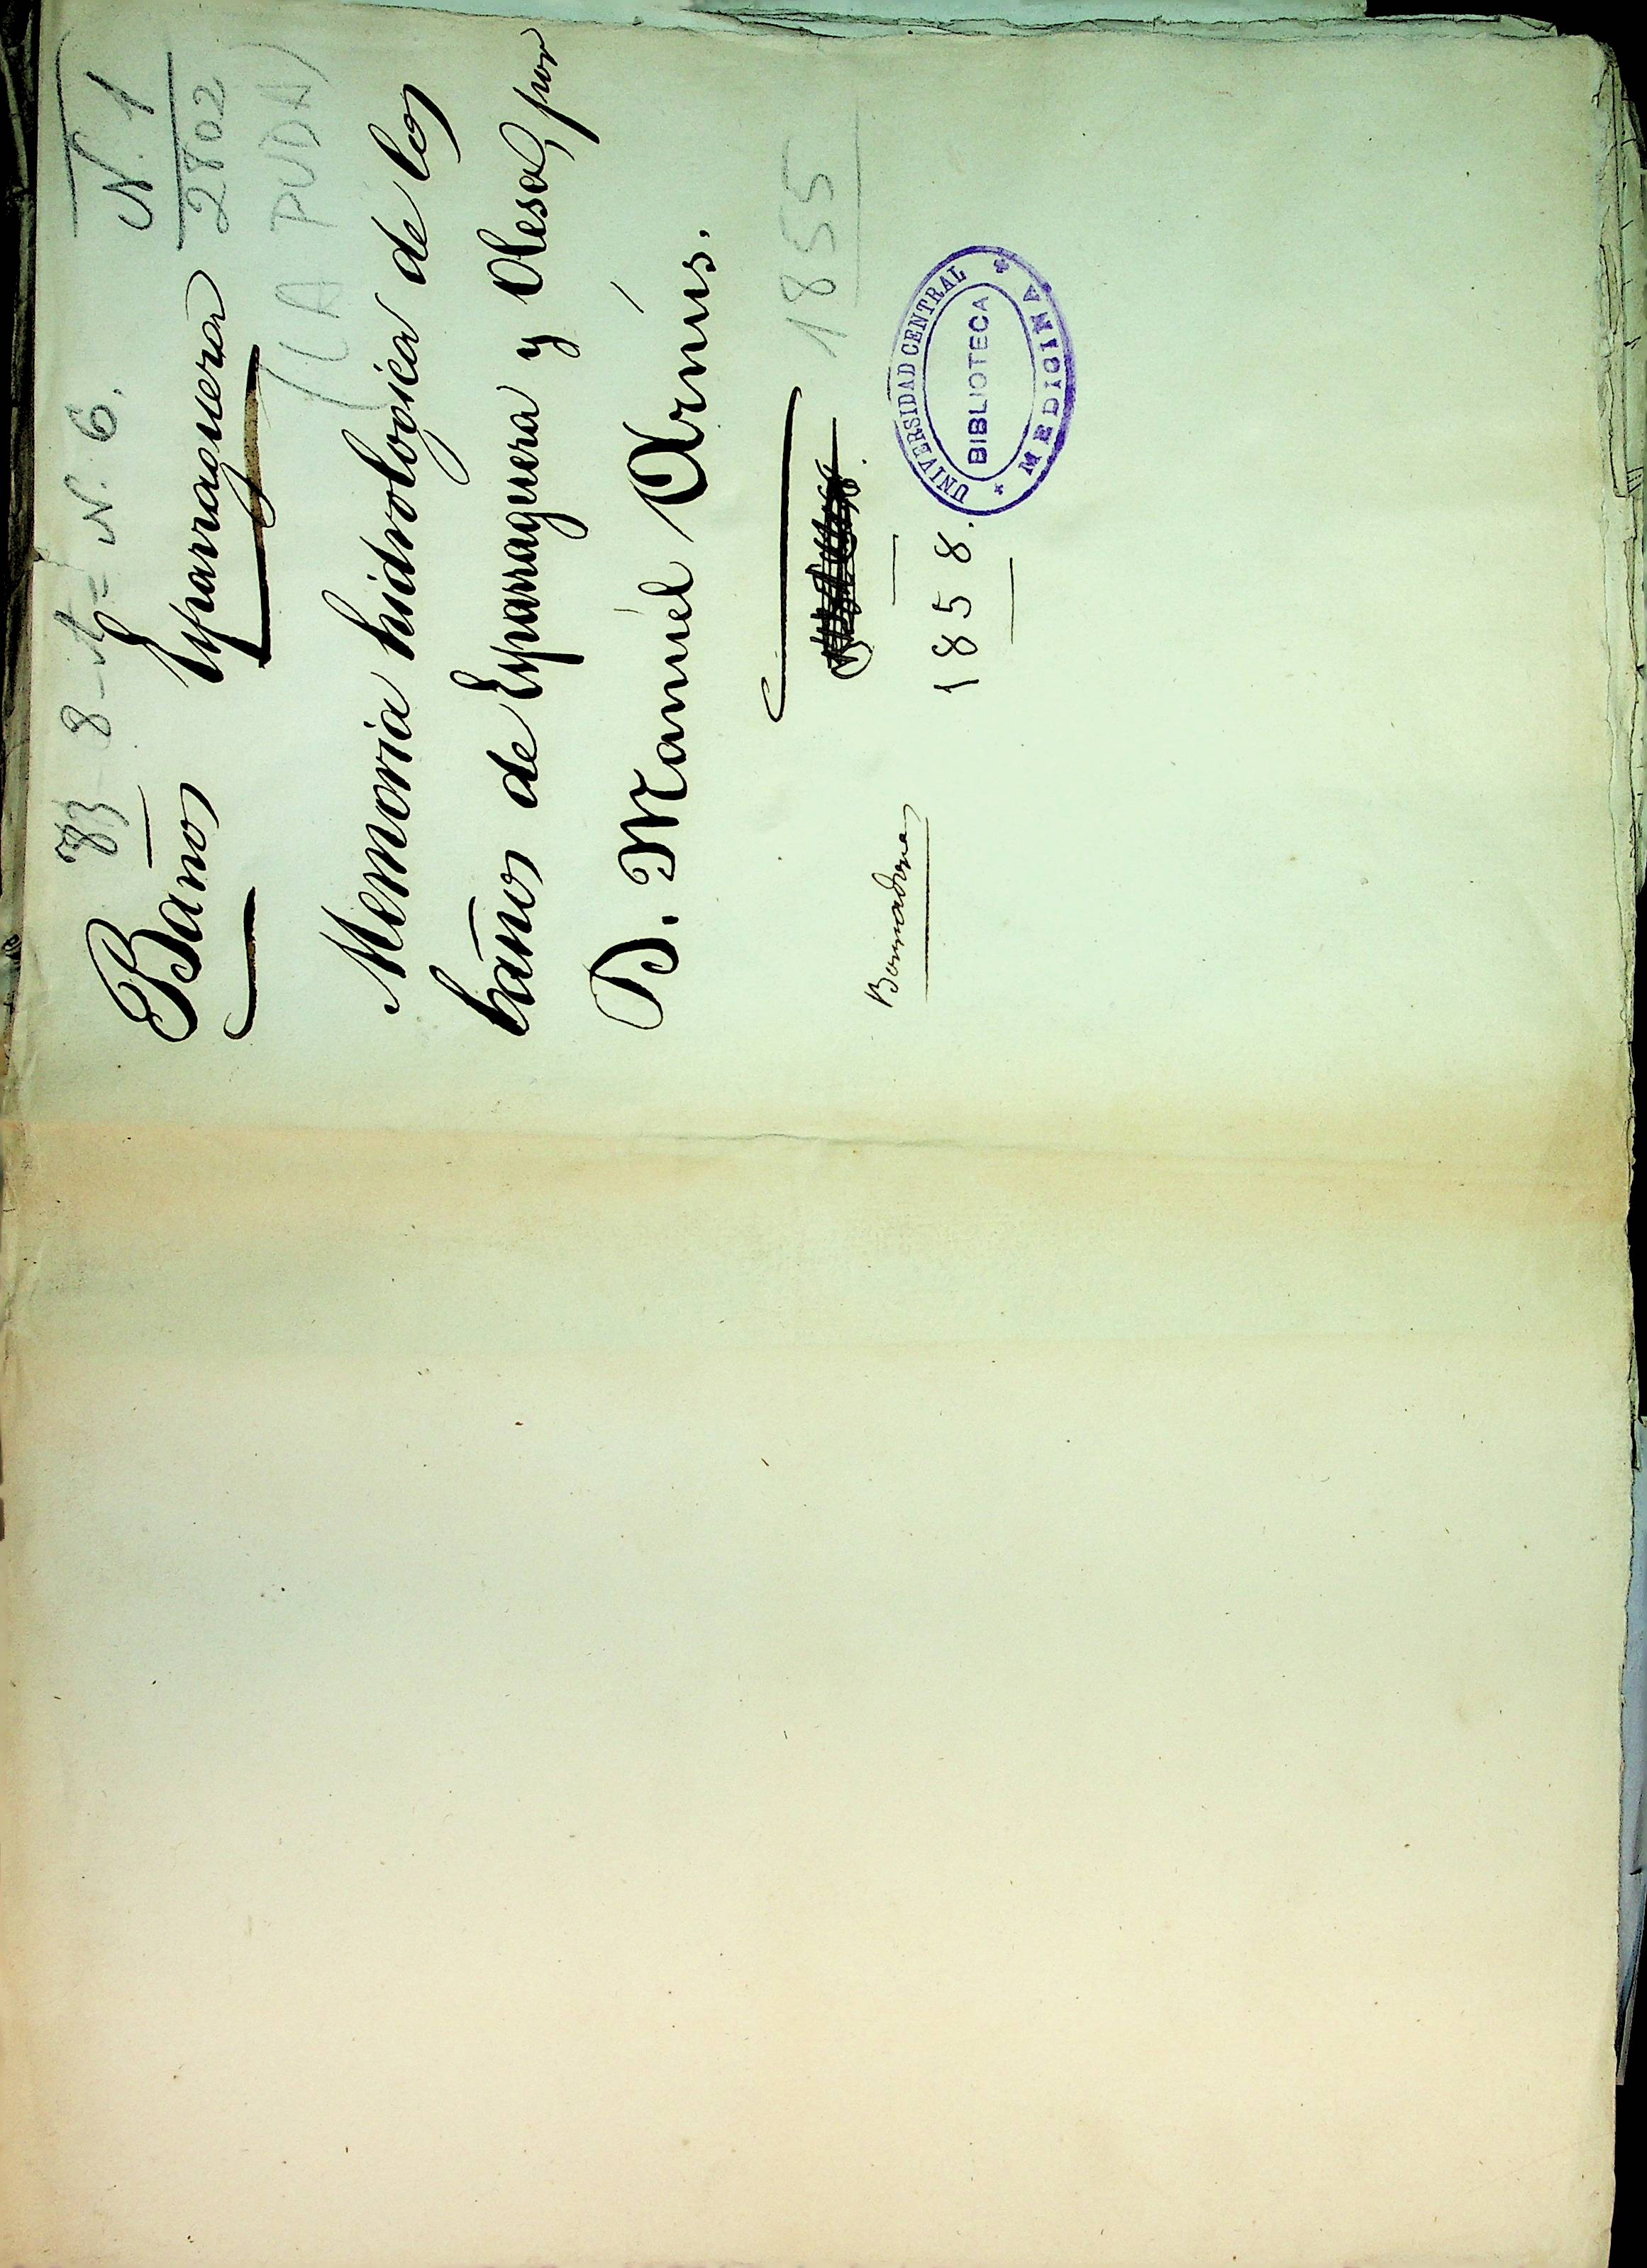 83-8-A=N. 6.
N. 1
2802
Baños Esparraguera
(LA PUDA)
Memoria hidrologica de los
baños de Esparraguera y Olesa, por
D. Manuel Arnús.
1855
1858.
UNIVERSIDAD CENTRAL
BIBLIOTECA
MEDICINA